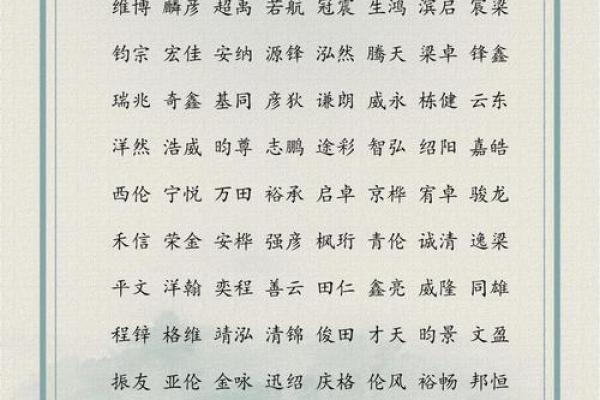 维博 麟彦 超禹 若航 冠震 生鸿 滨启 宸梁
钧宗 宏佳 安纳 源锋 泓然 腾天 梁卓 锋鑫
瑞兆 奇鑫 基同 彦狄 谦朗 威永 栋健 云东
洋然 浩威 昀尊 志鹏 途彩 智弘 绍阳 嘉皓
西伦 宁悦 万田 裕承 启卓 京桦 宥卓 骏龙
禾信 荣金 安桦 强彦 枫珩 青伦 诚清 逸梁
平文 洋翰 奕程 善云 田仁 鑫亮 威隆 同雄
程锌 格维 靖泓 清锦 俊田 才天 昀景 文盈
振友 亚伦 金咏 迅绍 庆格 伦风 裕畅 邦恒